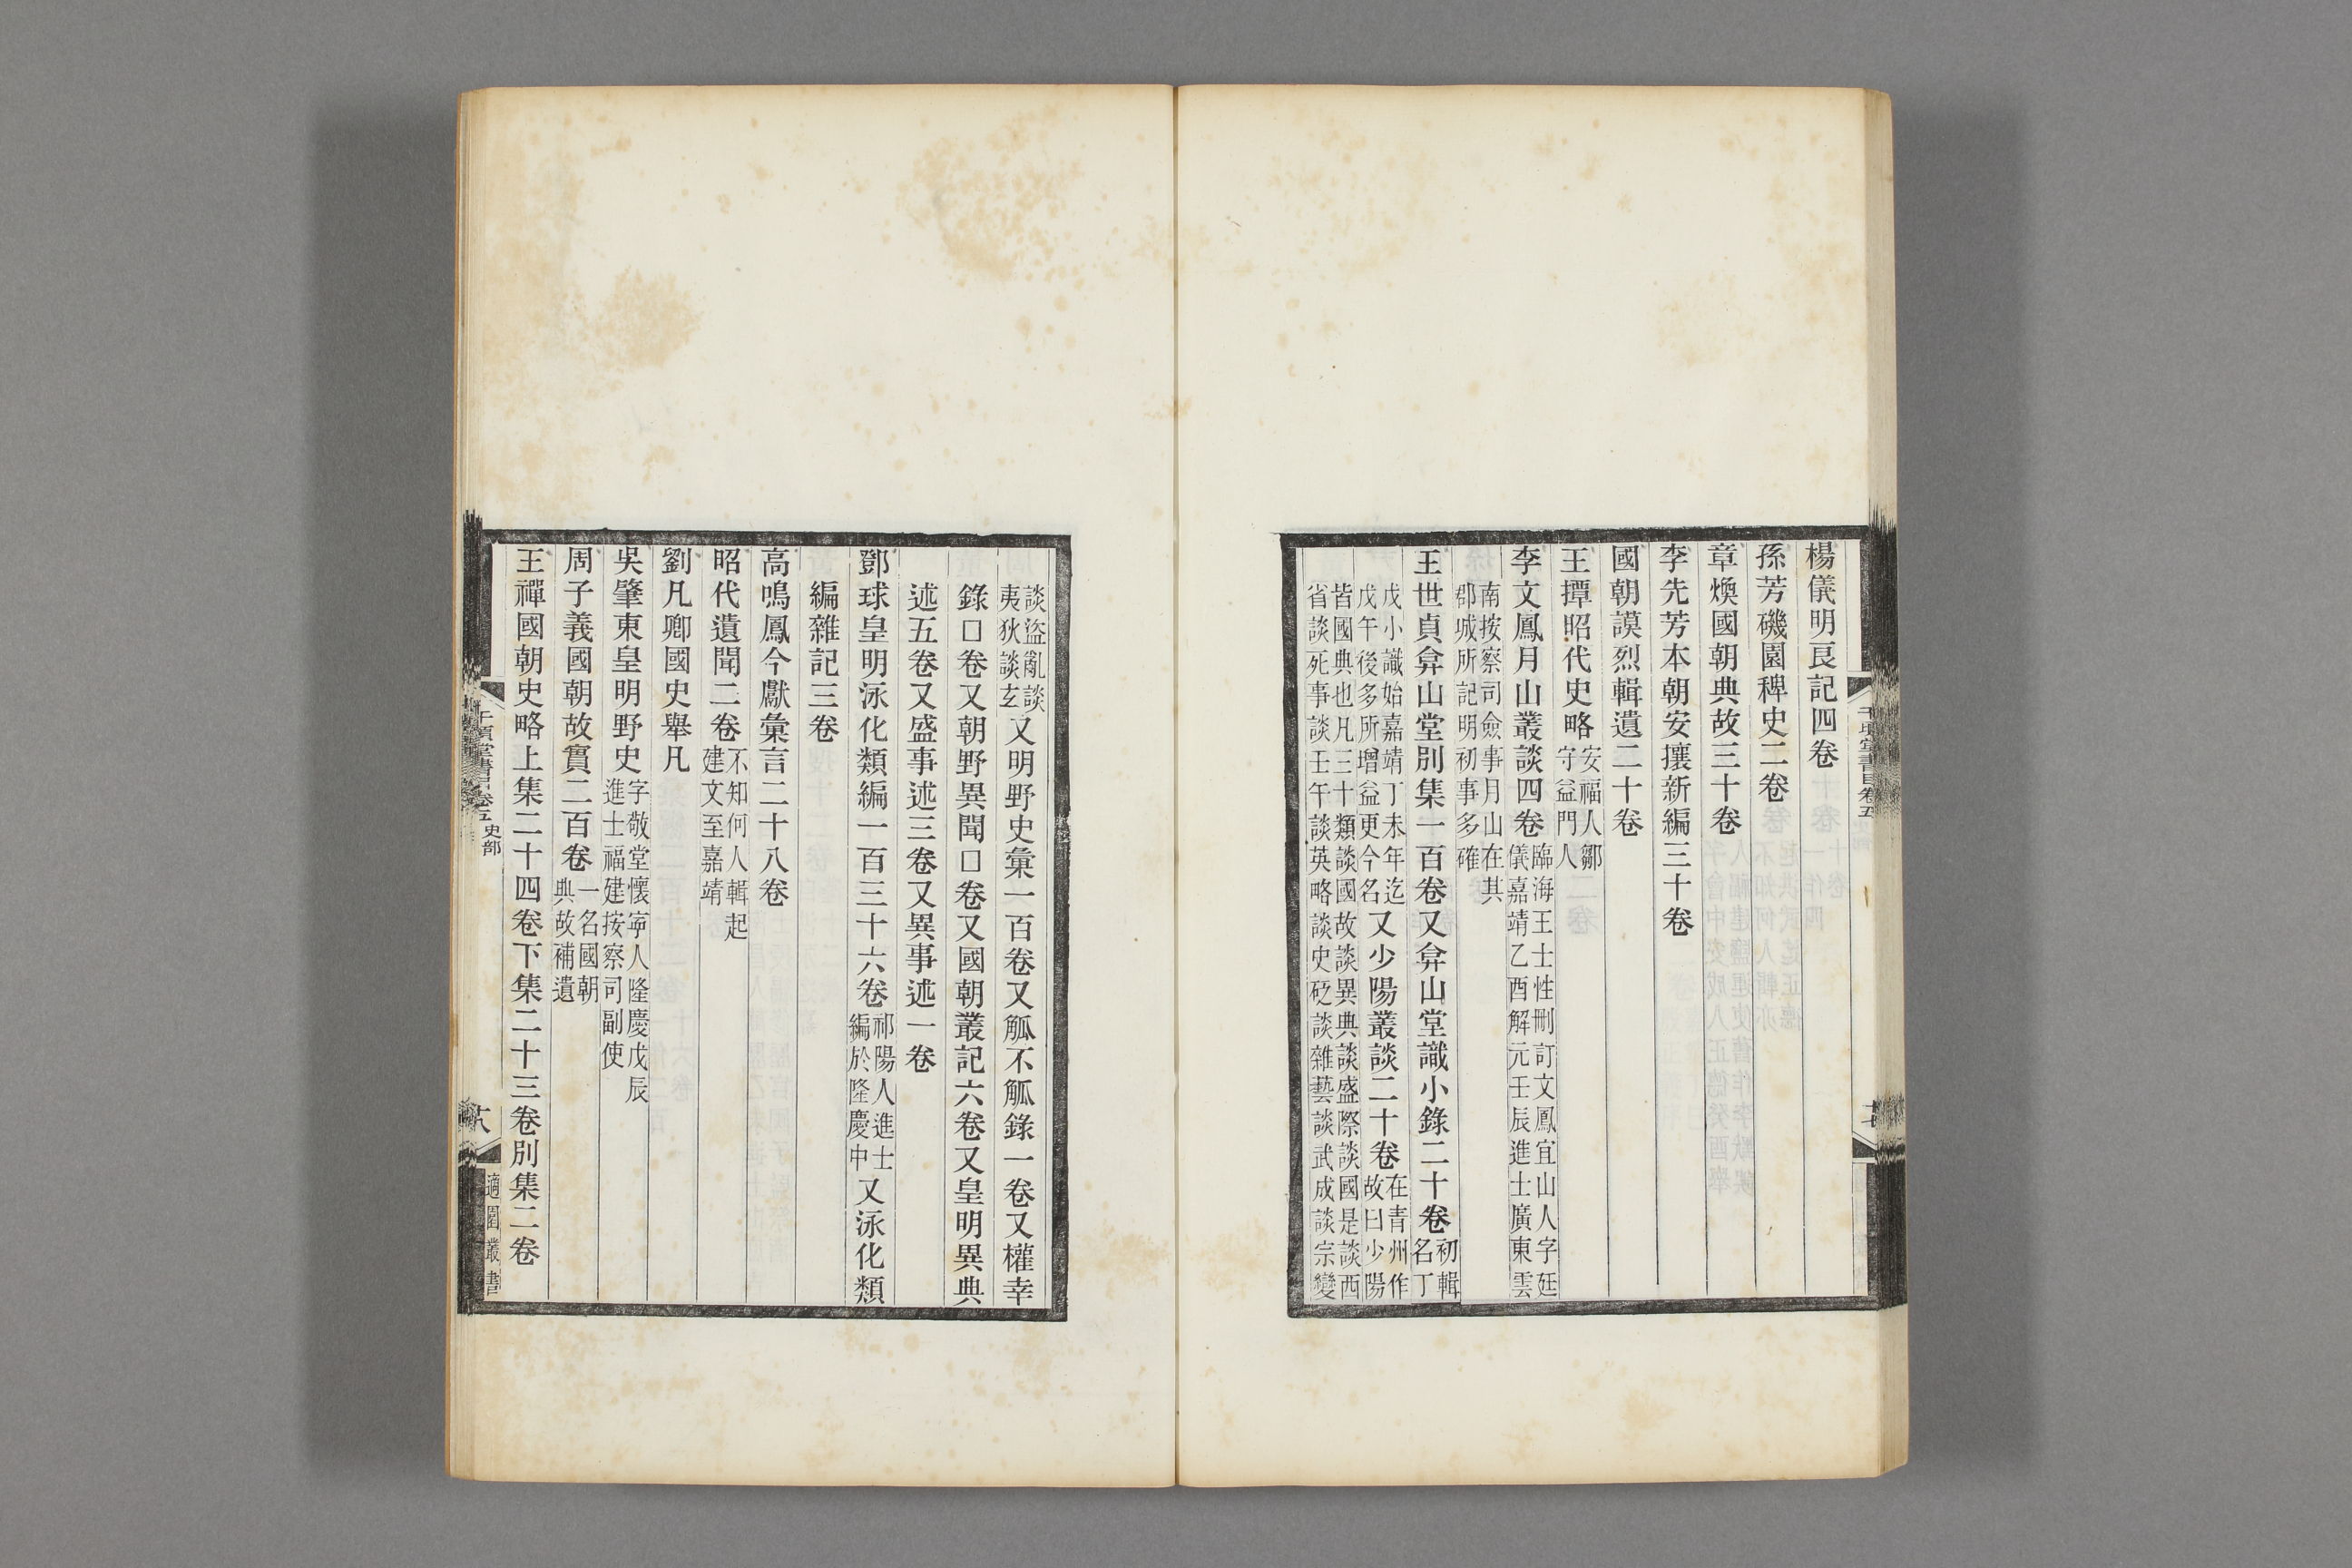 楊儀明良記四卷
孫芳磯園稗史二卷
章煥國朝典故三十卷
李先芳本朝安攘新編三十卷
國朝謨烈輯遺二十卷
王撢昭代史略
安福人鄒
守益門人
李文鳳月山叢談四卷
臨海王士性刪訂文鳳宜山人字廷
儀嘉靖乙酉解元壬辰進士廣東雲
南按察司僉事月山在其
郡城所記明初事多確
王世貞弇山堂別集一百卷又弇山堂識小錄二十卷
初輯
名丁
戊小識始嘉靖丁未年迄
戊午後多所增益更今名
又少陽叢談二十卷
在青州作
故曰少陽
皆國典也凡三十類談國故談異典談盛際談國是談西
省談死事談壬午談英略談史砭談雜藝談武成談宗變
談盜亂談
夷狄談玄
又明野史彙一百卷又觚不觚錄一卷又權幸
錄□卷又朝野異聞□卷又國朝叢記六卷又皇明異典
述五卷又盛事述三卷又異事述一卷
鄧球皇明泳化類編一百三十六卷
祁陽人進士
編於隆慶中
又泳化類
編雜記三卷
高鳴鳳今獻彙言二十八卷
昭代遺聞二卷
不知何人輯起
建文至嘉靖
劉凡卿國史舉凡
吳肇東皇明野史
字敬堂懷寧人隆慶戊辰
進士福建按察司副使
周子義國朝故實二百卷
一名國朝
典故補遺
王禪國朝史略上集二十四卷下集二十三卷別集二卷
千頃堂書目卷五
十七
千頃堂書目卷五
史部
十八
適園叢書